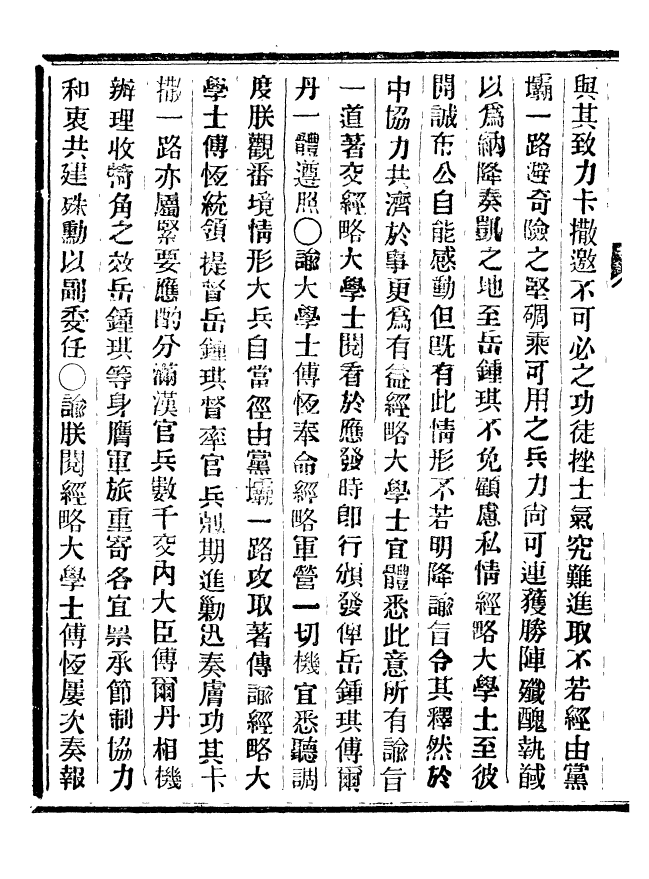 與其致力卡撒邀不可必之功徒挫士氣究難進取不若經由黨
壩一路避奇險之堅碉乘可用之兵力尙可連獲勝陣殲醜執馘
以爲納降奏凱之地至岳鍾琪不免顧慮私情經略大學士至彼
開誠布公自能感動但旣有此情形不若明降諭旨令其釋然於
中協力共濟於事更爲有益經略大學士宜體悉此意所有諭旨
一道著交經略大學士閱看於應發時卽行頒發俾岳鍾琪傅爾
丹一體遵照○諭大學士傅恆奉命經略軍營一切機宜悉聽調
度朕觀番境情形大兵自當徑由黨壩一路攻取著傳諭經略大
學士傅恆統領提督岳鍾琪督率官兵剋期進勦迅奏膚功其卡
撒一路亦屬緊要應酌分滿漢官兵數千交內大臣傅爾丹相機
辦理收犄角之效岳鍾琪等身膺軍旅重寄各宜稟承節制協力
和衷共建殊勳以副委任○諭朕閱經略大學士傅恆屢次奏報